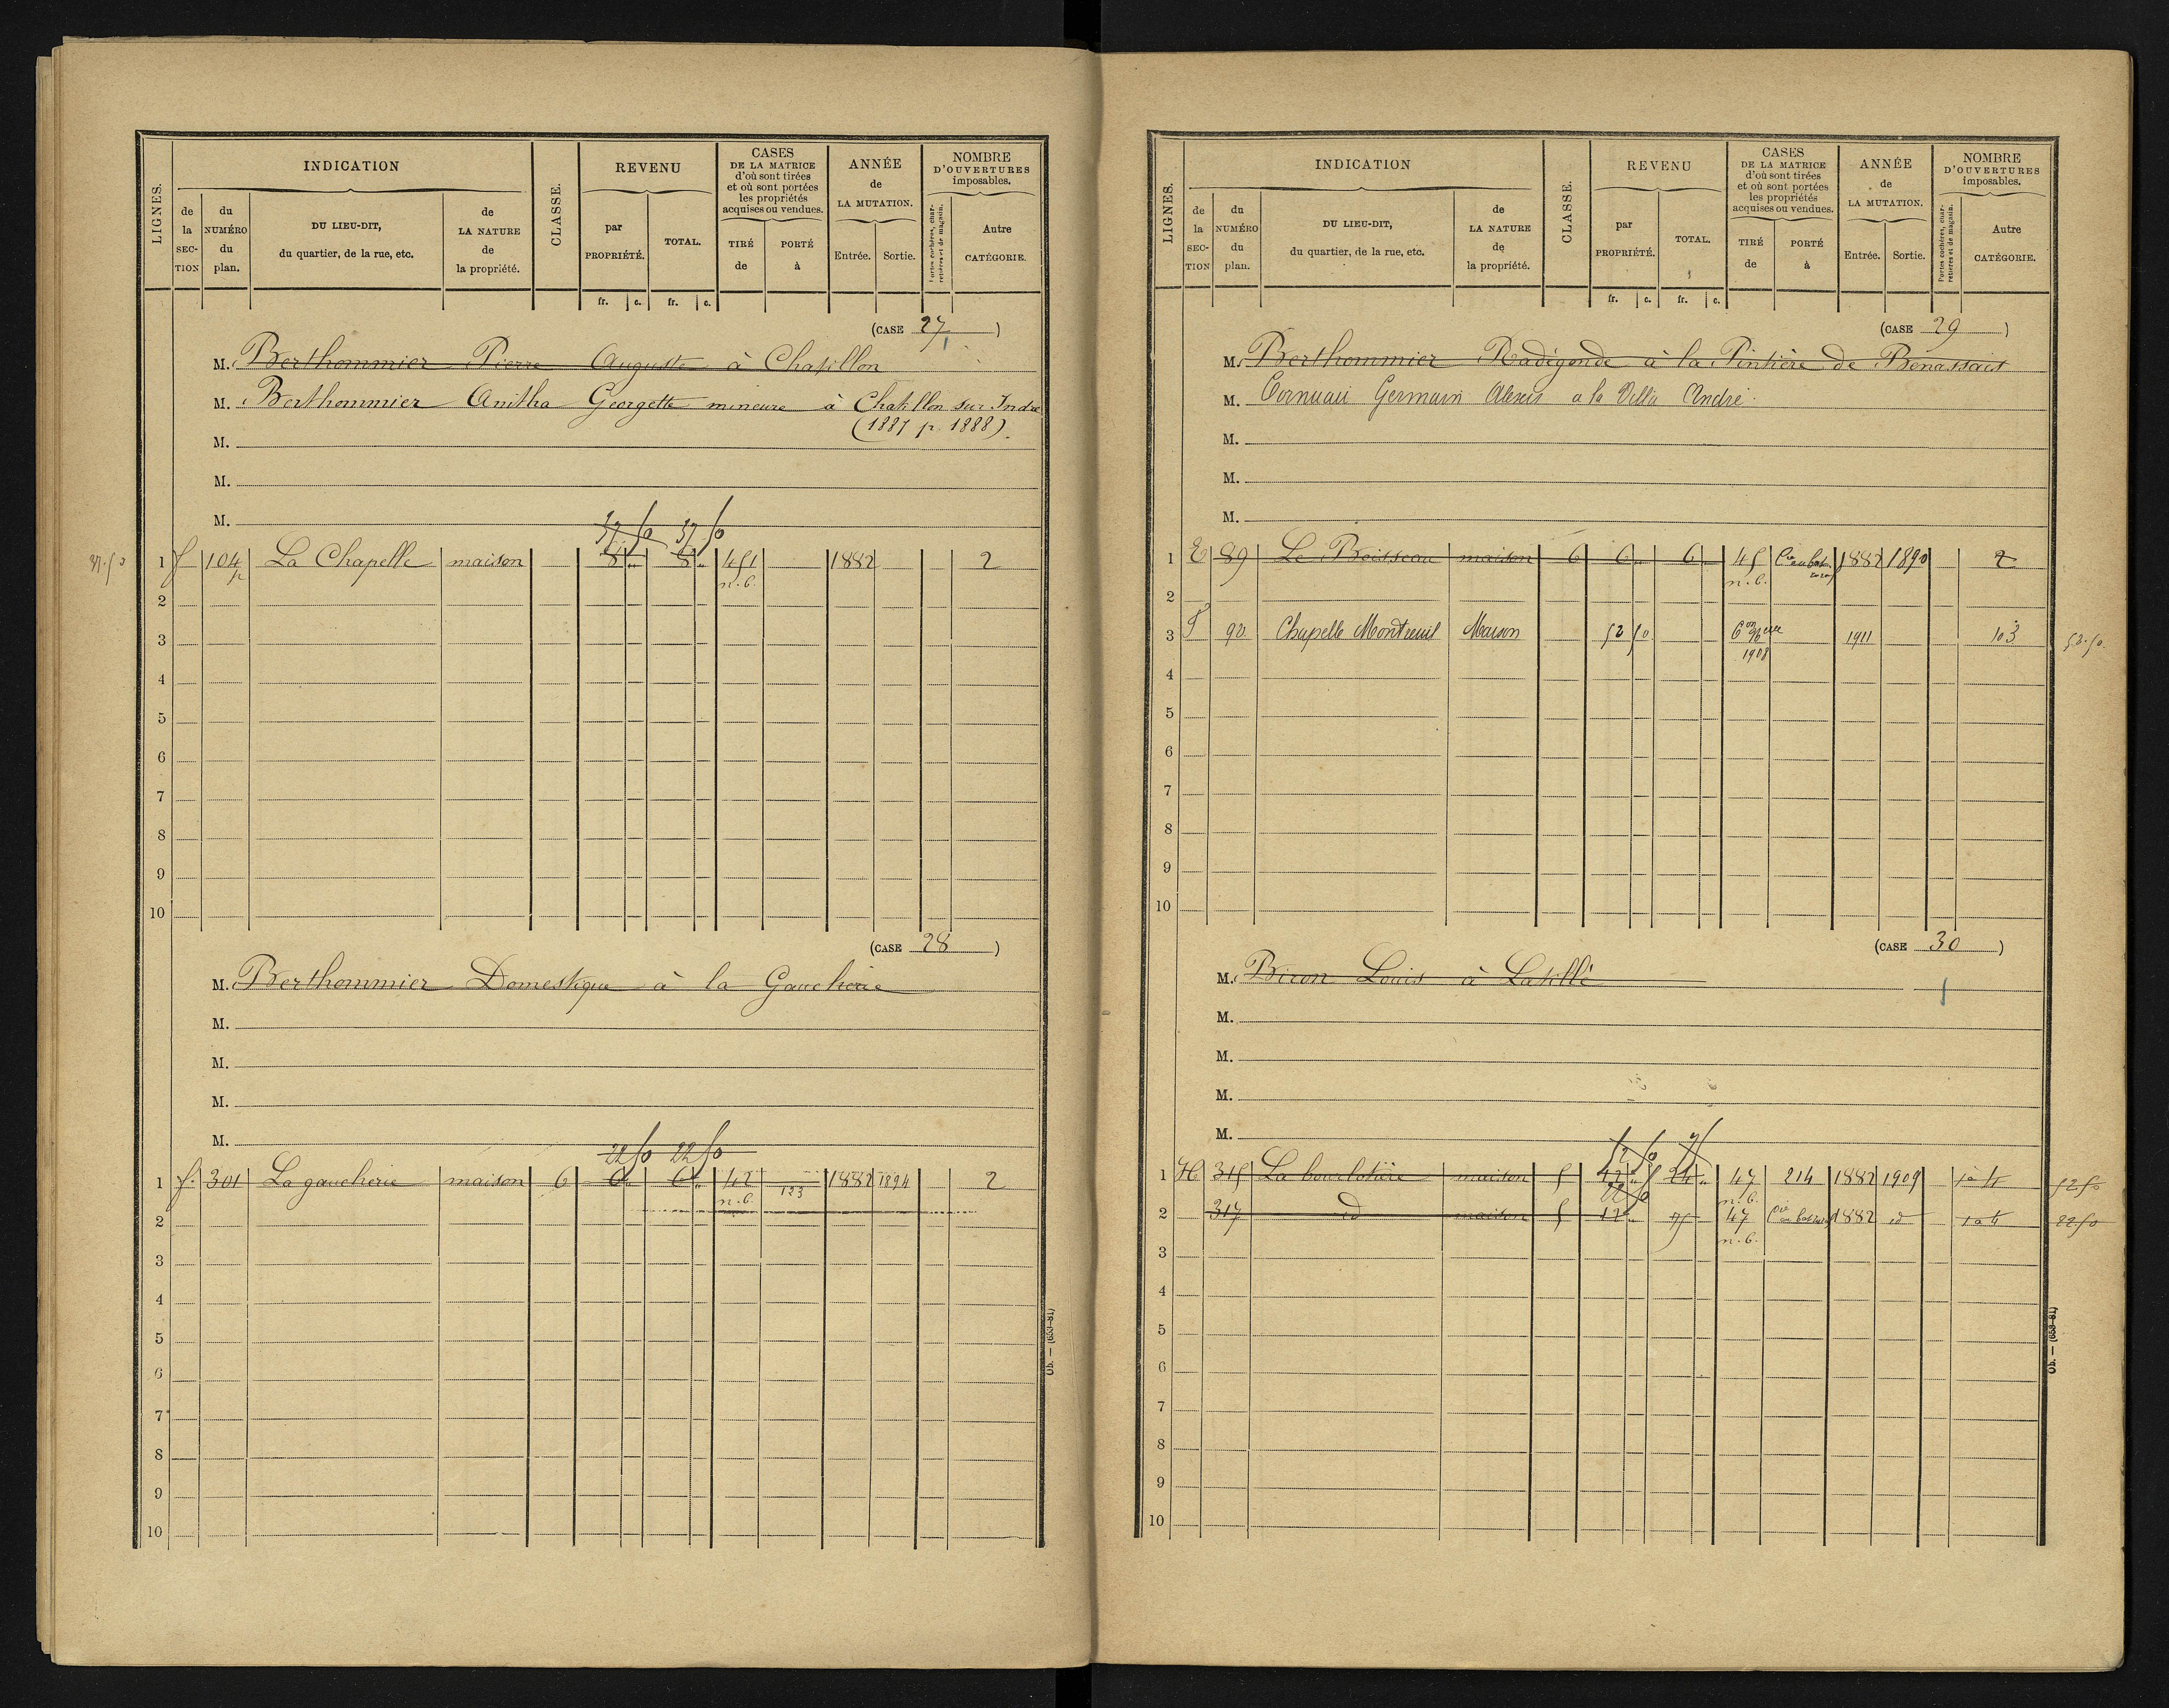 LIGNES.
INDICATION
de la SEC-TION
du NUMÉRO du plan.
DU LIEU-DIT, du quartier, de la rue, etc.
de LA NATURE de la propriété.
CLASSE.
REVENU
par PROPRIÉTÉ.
TOTAL.
CASES DE LA MATRICE d'où sont tirées et où sont portées les propriétés acquises ou vendues.
TIRÉ de
PORTÉ à
ANNÉE de LA MUTATION.
Entrée.
Sortie.
NOMBRE D'OUVERTURES imposables.
Portes cochères, char-retières et de magasin.
Autre CATÉGORIE.
fr. c. fr. c.
(CASE 27)
M. Berthommier Pierre Auguste à Chatillon
M. Berthommier Anitha Georgette mineure à Chatillon sur Indre
(1887 p. 1888).
M.
M.
M.
37 50 37 50
37.50 1 f 104 p La Chapelle maison 8 " 8 " 451 n.b. 1882 2
2
3
4
5
6
7
8
9
10
(CASE 28)
M. Berthommier Domestique à la Gaucherie
M.
M.
M.
M.
22 50 22 50
1 f. 301 La gaucherie maison 6 6 " 6 " 42 n.b. 123 1882 1894 2
2
3
4
5
6
7
8
9
10
Ob. — (653-81)
LIGNES.
INDICATION
de la SEC-TION
du NUMÉRO du plan.
DU LIEU-DIT, du quartier, de la rue, etc.
de LA NATURE de la propriété.
CLASSE.
REVENU
par PROPRIÉTÉ.
TOTAL.
CASES DE LA MATRICE d'où sont tirées et où sont portées les propriétés acquises ou vendues.
TIRÉ de
PORTÉ à
ANNÉE de LA MUTATION.
Entrée.
Sortie.
NOMBRE D'OUVERTURES imposables.
Portes cochères, char-retières et de magasin.
Autre CATÉGORIE.
fr. c. fr. c.
(CASE 29)
M. Berthommier Radégonde à la Pintière de Benassais
M. Cornuau Germain Alexis a la Villa André
M.
M.
M.
1 E 89 Le Boisseau maison 6 6 " 6 " 45 n.b. 1882 1890 2
2
3 F 90 Chapelle Montreuil Maison 52 50 1908 1911 103 52.50
4
5
6
7
8
9
10
(CASE 30)
M. Biron Louis à Latillé
M.
M.
M.
M.
52 50 75
1 H 315 La bourlotière maison 5 12 " 24 " 47 n.b. 214 1882 1909 1 à 4 52 50
22 50
2 317 id maison 5 12 " 75 47 n.b. 1882 id 1 à 4 22.50
3
4
5
6
7
8
9
10
Ob. — (653-81)